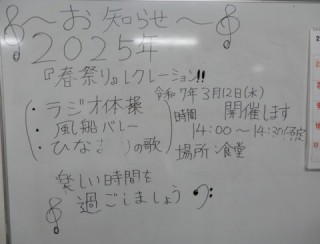 〜お知らせ〜
2025年
『春祭り』レクレーション!!
令和7年3月12日(水)
・ラジオ体操
・風船バレー
・ひな の歌
時間 開催します
14:00〜14:30予定
場所:食堂
楽しい時間を
過ごしましょう